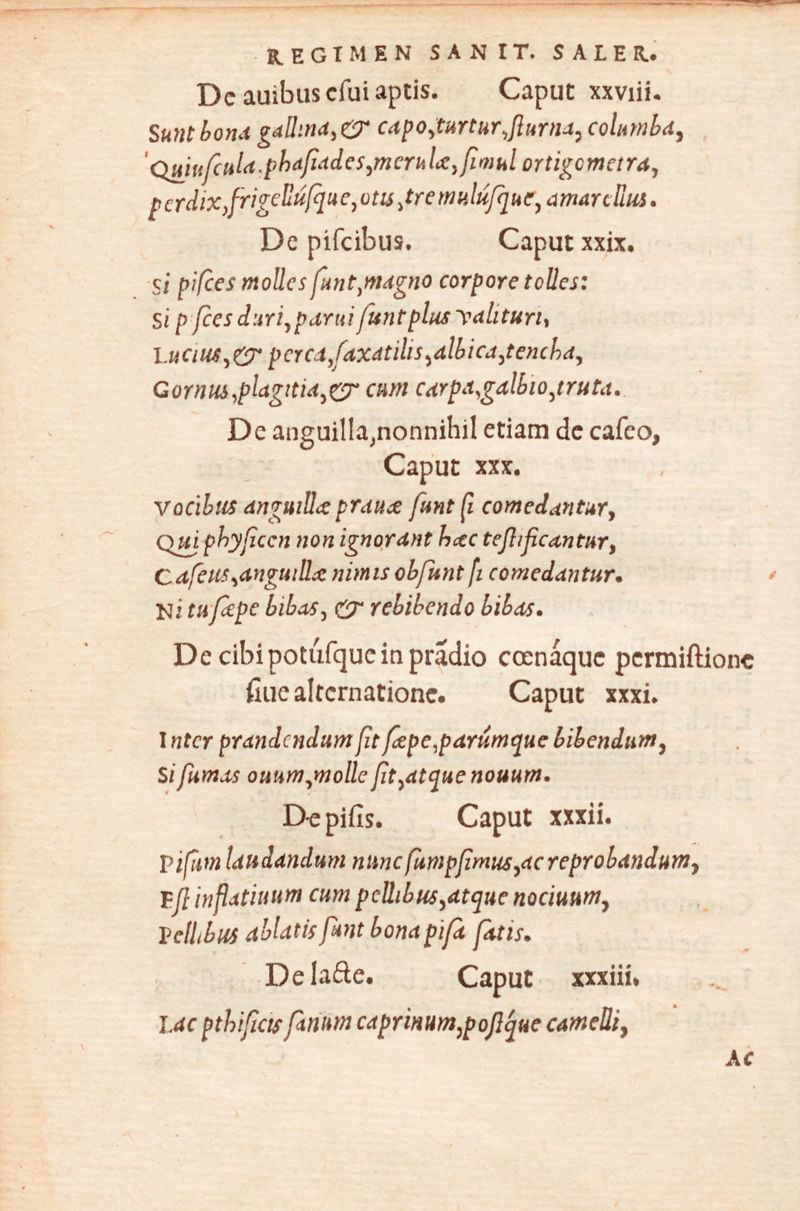 REGIMEN SANIT. SALER.
De auibus eſui aptis. Caput xxviii.
Sunt bona gallina, & capo, turtur, ſturna, columba,
Quiuſcula. phaſiades, merulæ, ſimul ortigometra,
perdix, frigellúſque, otis, tremulúſque, amarellus.
De piſcibus. Caput xxix.
Si piſces molles ſunt, magno corpore tolles:
Si p ſces duri, parui ſunt plus valituri,
Lucius, & perca, ſaxatilis, albica, tencha,
Gornus, plagitia, & cum carpa, galbio, truta.
De anguilla, nonnihil etiam de caſeo,
Caput xxx.
Vocibus anguillæ prauæ ſunt ſi comedantur,
Qui phyſicen non ignorant hæc teſtificantur,
Caſeus, anguillæ nimis obſunt ſi comedantur.
Ni tu ſæpe bibas, & rebibendo bibas.
De cibi potúſque in prãdio cœnáque permiſtione
ſiue alternatione. Caput xxxi.
Inter prandendum ſit ſæpe, parúmque bibendum,
Si ſumas ouum, molle ſit, atque nouum.
De piſis. Caput xxxii.
Piſum laudandum nunc ſumpſimus, ac reprobandum,
Eſt inflatiuum cum pellibus, atque nociuum,
Pellibus ablatis ſunt bona piſa ſatis.
De lacte. Caput xxxiii.
Lac pthiſicis ſanum caprinum, poſtq́ue camelli,
Ac